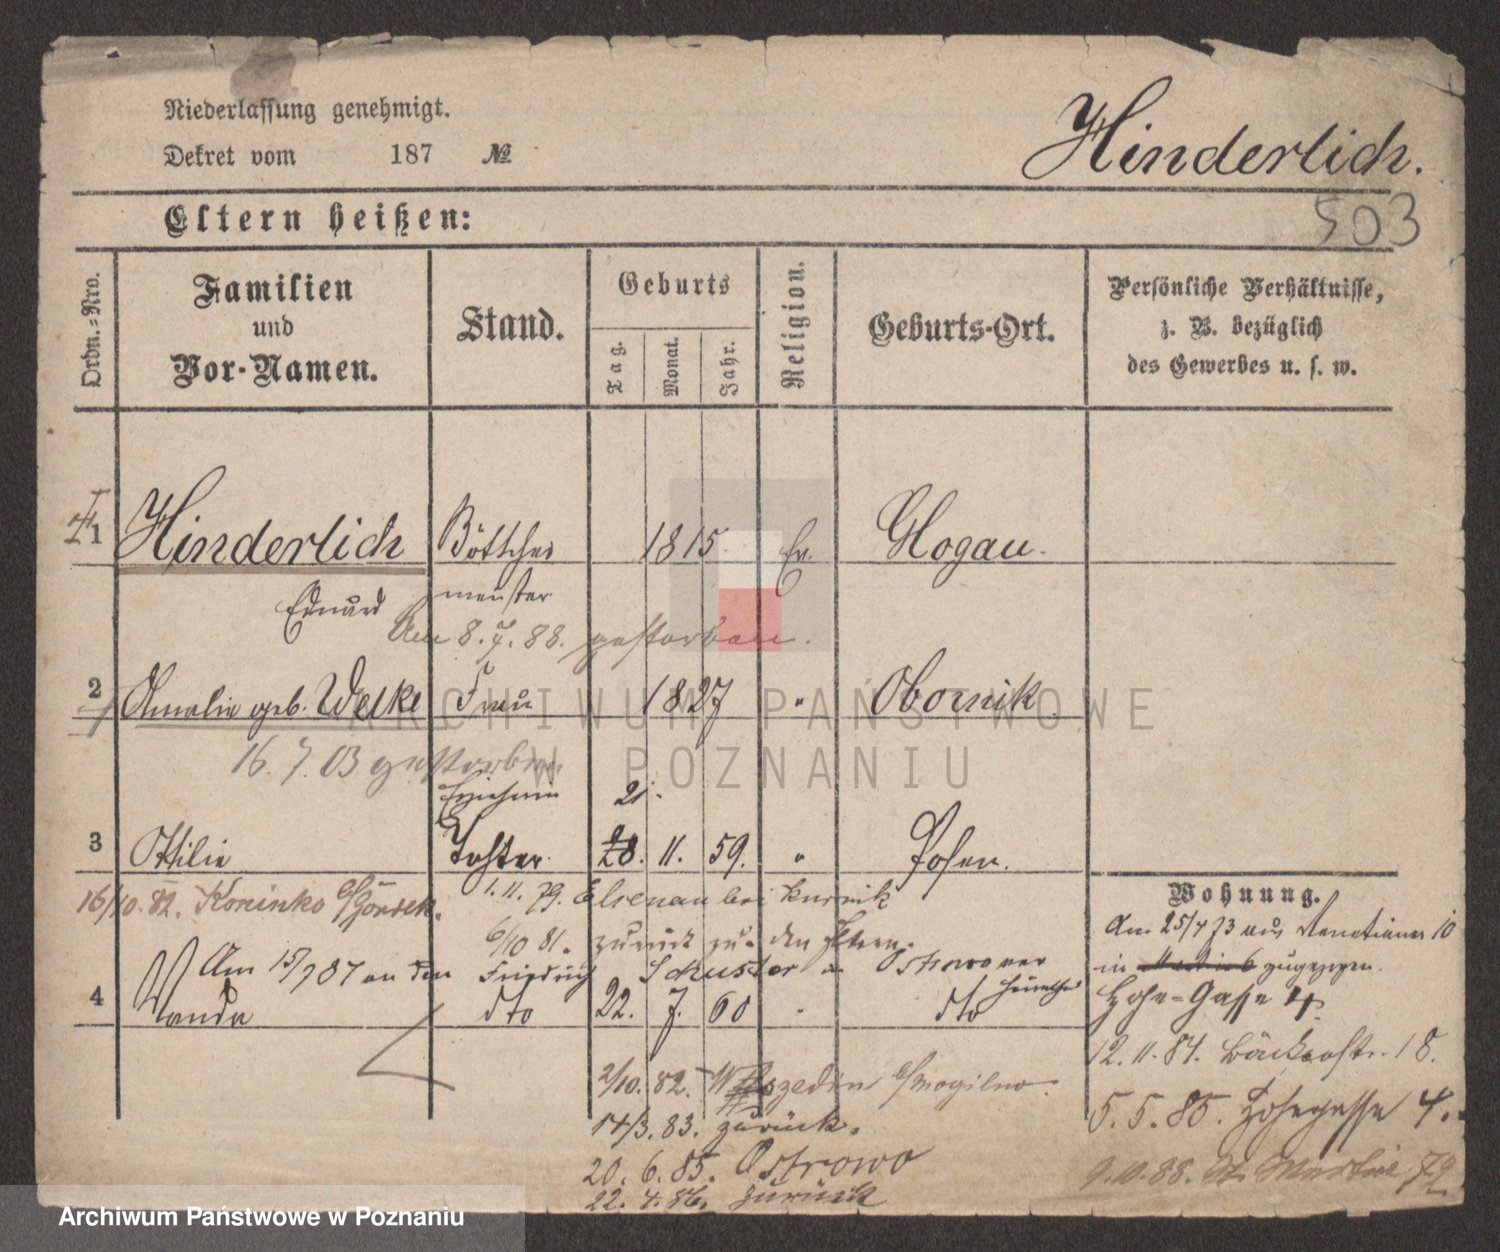 Niederlassung genehmigt.
Dekret vom 187 №
Hinderlich.
503
Eltern heißen:
Ordn.=Nro.
Familien
und
Vor-Namen.
Stand.
Geburts
Tag.
Monat.
Jahr.
Religion.
Geburts-Ort.
Persönliche Verhältnisse,
z. B. bezüglich
des Gewerbes u. s. w.
1 Hinderlich Böttcher 1815 Ev. Glogau.
Eduard meister
Am 8. 7. 88. gestorben.
2 Amalie geb. Welke Frau 1827 " Obornik
16. 7. 03 gestorben
Erzieherin 21.
3 Ottilie Tochter 28. 11. 59. " Posen.
16/10. 82. Koninko
1. 11. 79. Elsenau bei Kurnik
6/10 81. zurück zu den Eltern.
Am 15/7 87 an den Friedrich Schuster Ostrowo
4 Wanda dto 22. 7. 60 " dto
2/10. 82. Mogilno.
14/3. 83. zurück.
20. 6. 85. Ostrowo
22. 4. 86. zurück
Wohnung.
Am 25/4 73 aus Venetianer 10
in zugezogen.
Hohe=Gasse 4.
12. 11. 84. Bäckerstr. 18.
5. 5. 85. Hohegasse 4.
9. 10. 88. St. Martin 72
ARCHIWUM PAŃSTWOWE
W POZNANIU
Archiwum Państwowe w Poznaniu